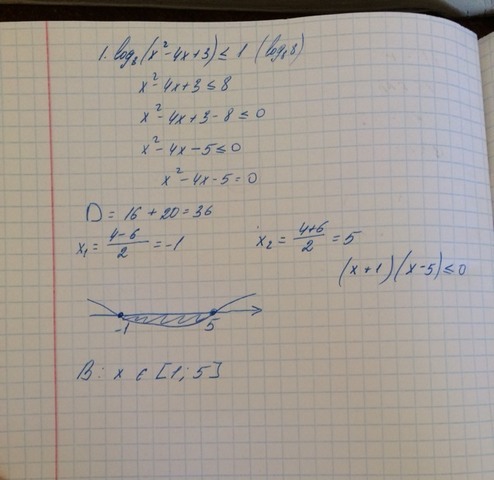 1. log₈(x²-4x+3) ≤ 1 (log₈8)
x²-4x+3 ≤ 8
x²-4x+3-8 ≤ 0
x²-4x-5 ≤ 0
x²-4x-5 = 0
D = 16 + 20 = 36
x₁ = (4-6)/2 = -1 x₂ = (4+6)/2 = 5
(x+1)(x-5) ≤ 0
-1 5
В: x ∈ [1; 5]